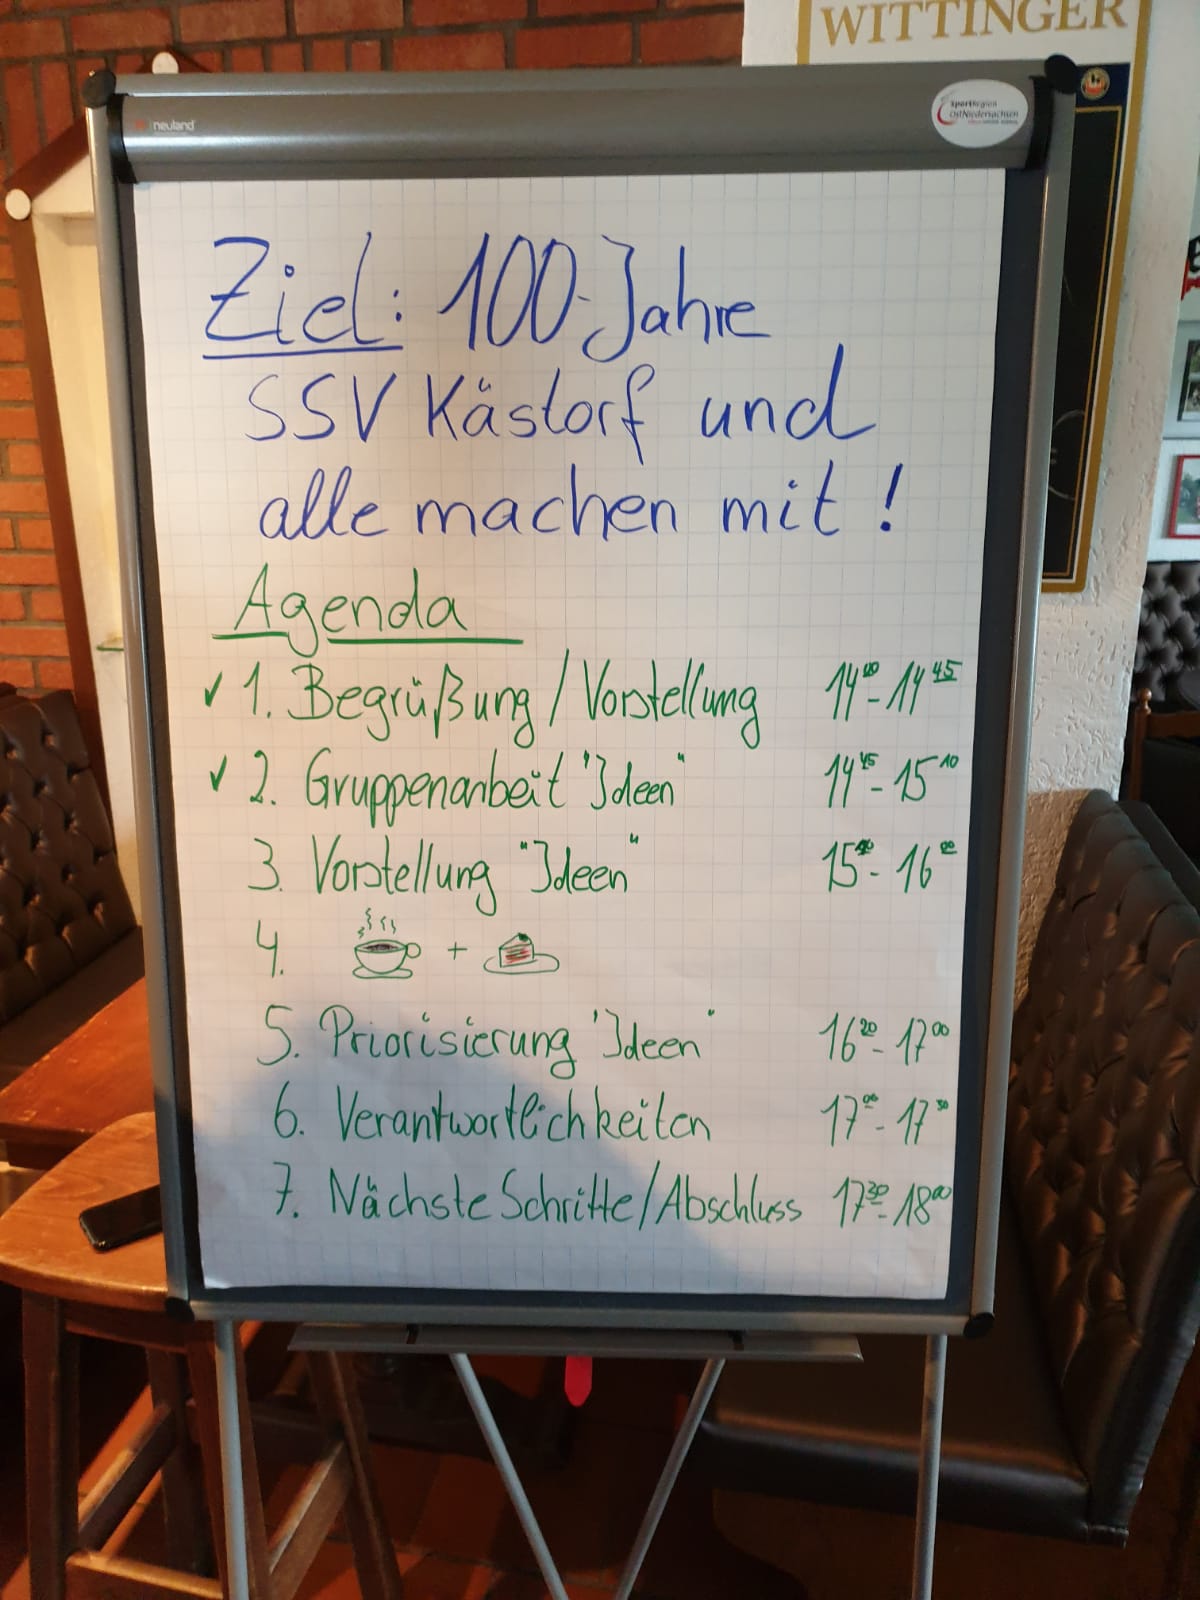 WITTINGER
neuland
SportRegion
OstNiedersachsen
Ziel: 100-Jahre
SSV Kästorf und
alle machen mit!
Agenda
✓ 1. Begrüßung / Vorstellung 14⁰⁰ - 14⁴⁵
✓ 2. Gruppenarbeit "Ideen" 14⁴⁵ - 15¹⁰
3. Vorstellung "Ideen" 15¹⁰ - 16⁰⁰
4. +
5. Priorisierung "Ideen" 16²⁰ - 17⁰⁰
6. Verantwortlichkeiten 17⁰⁰ - 17³⁰
7. Nächste Schritte/Abschluss 17³⁰ - 18⁰⁰